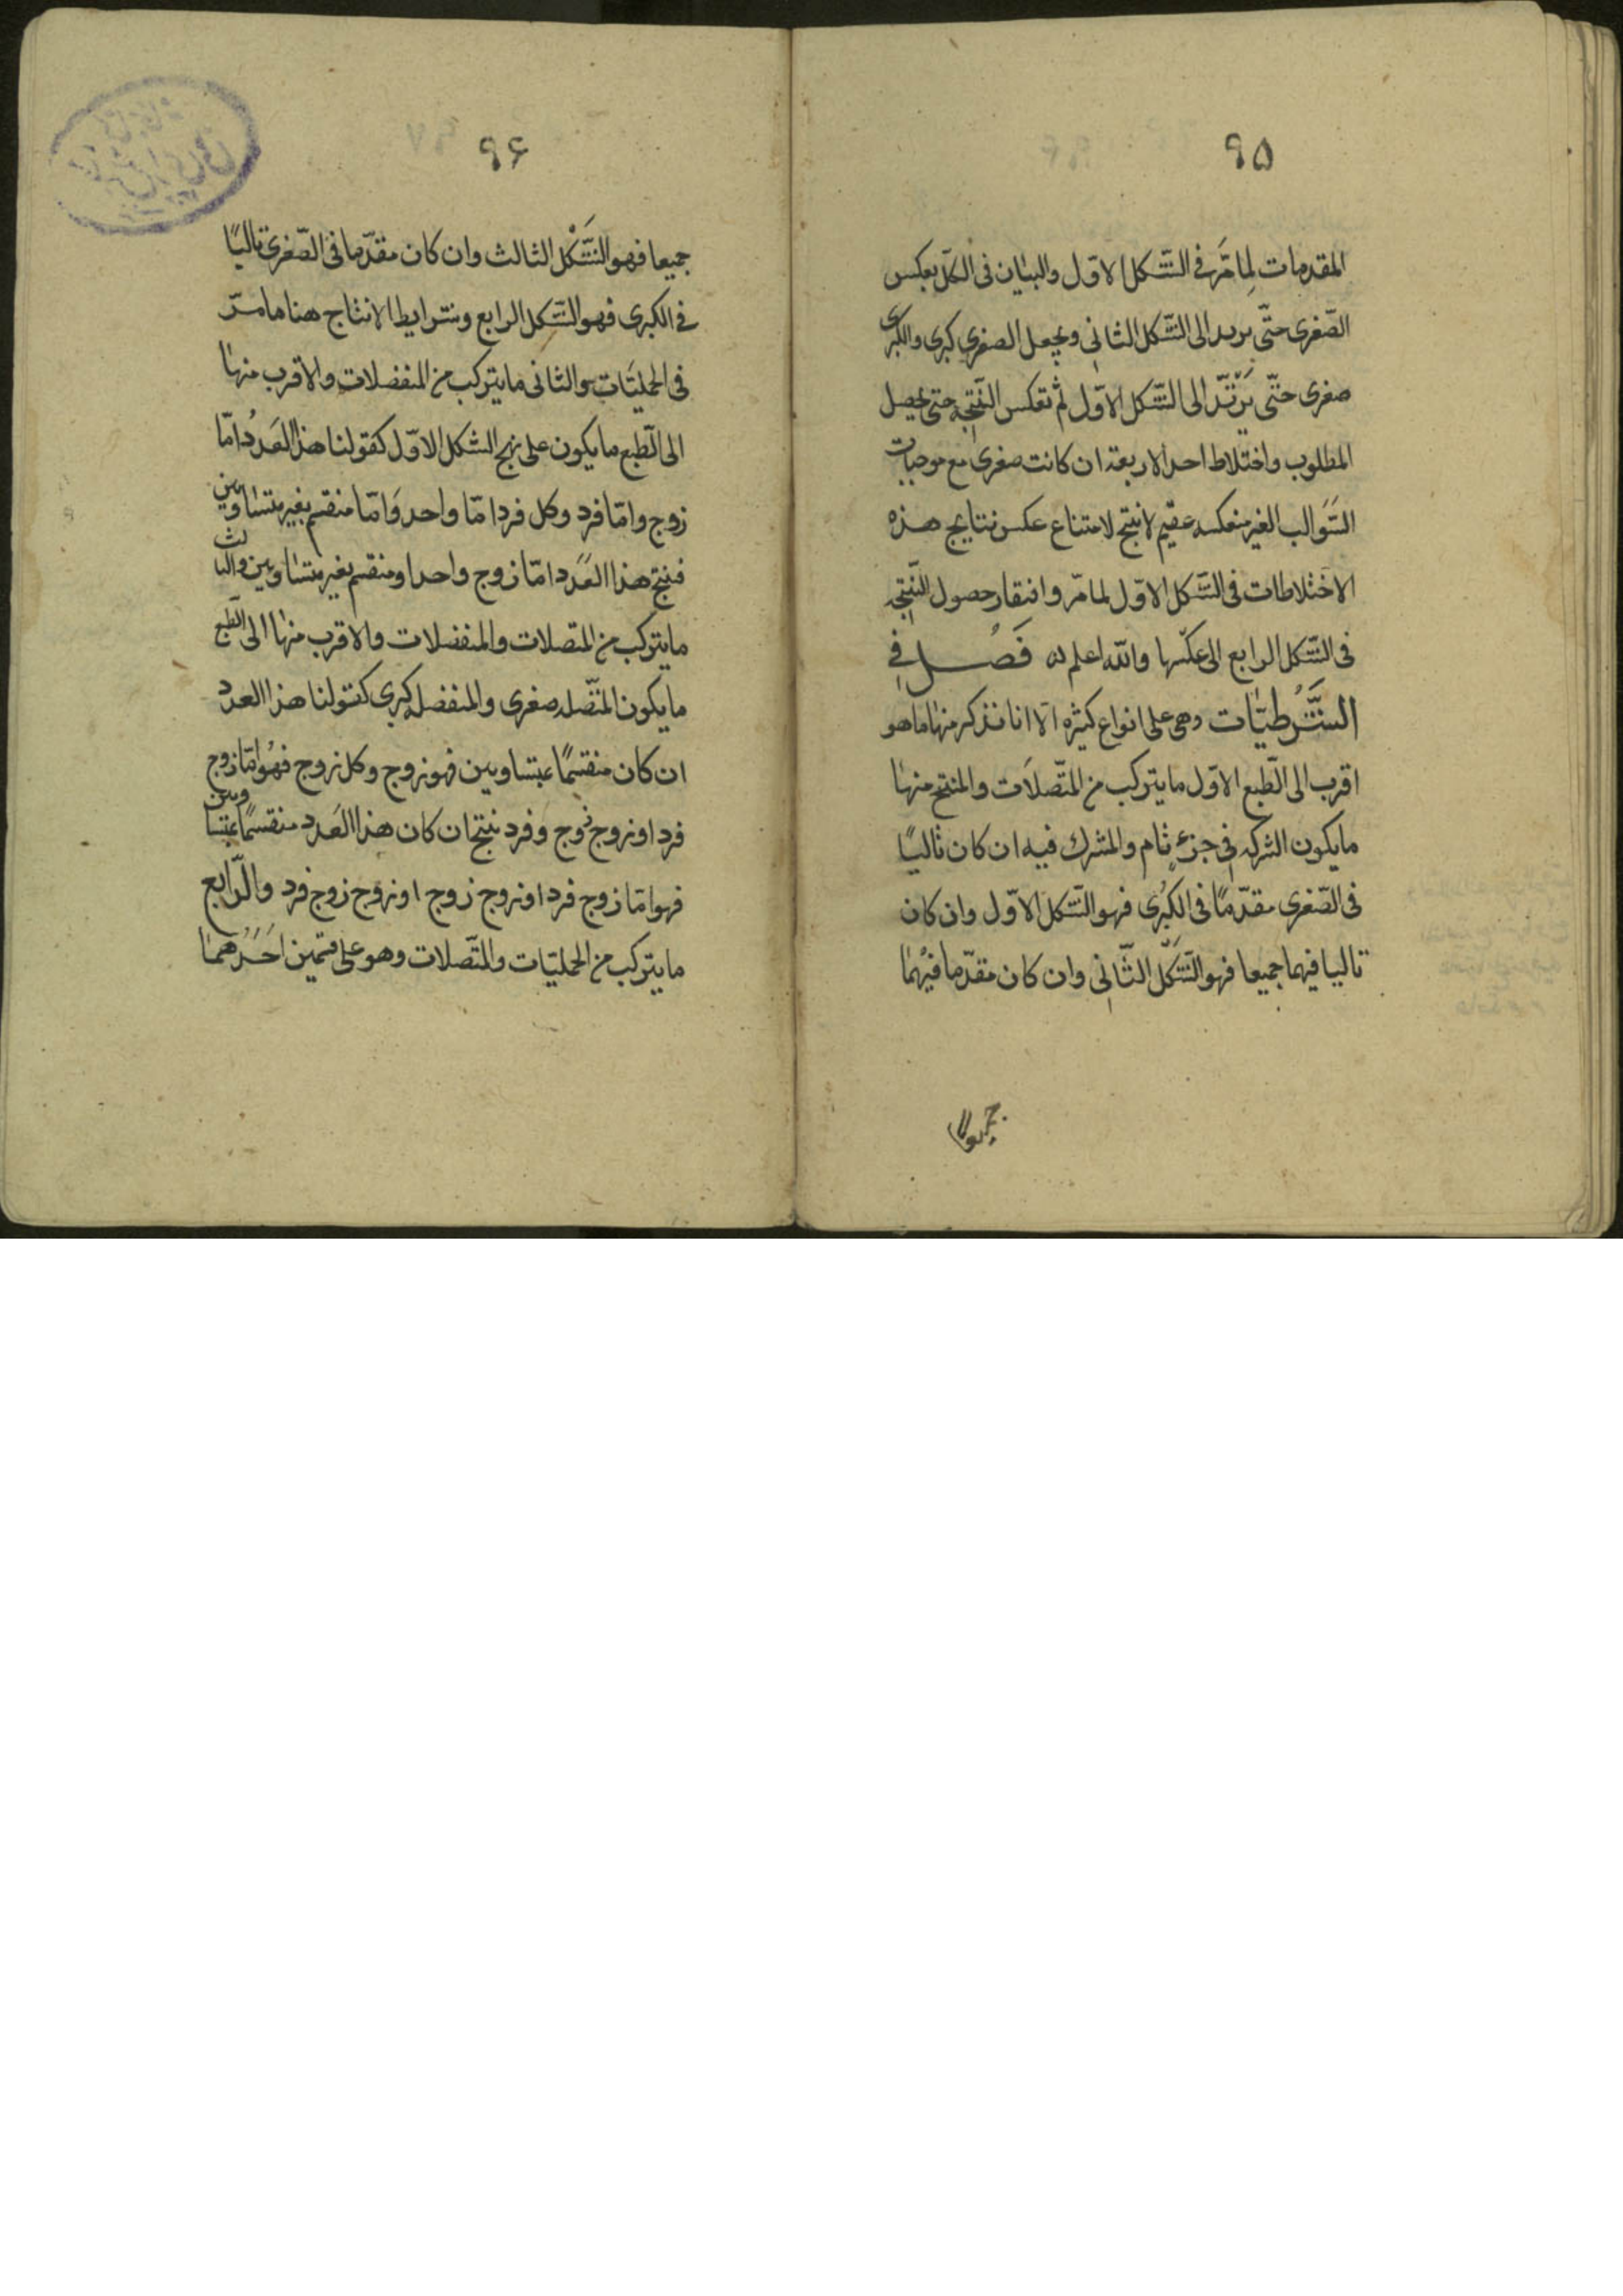 ٩٥
المقدمات لِمَا مَرَّ فى الشّكل الاوّل والبيان فى الكلّ بعكس
الصّغرى حتّى يرتد الى الشّكل الثانى ويجعل الصغرى كبرى والكبرى
صغرى حتّى يَرْتَدَّ الى الشّكل الاوّل ثم تعكس النّتيجه حتى يحصل
المطلوب واختلاط احد الاربعة ان كانت صغرى مع موجبات
السَّوالب الغير منعكسه عقيم لا ينتج لامتناع عكس نتايج هذه
الاختلاطات فى الشّكل الاوّل لما مرّ وافتقار حصول النّتيجه
فى الشّكل الرابع الى عكسها والله اعلم فَصْل فى
الشَّرْطيّات وهى على انواع كثيره الّا انا نذكر منها ما هو
اقرب الى الطّبع الاوّل ما يتركب من المتّصلات والمنتج منها
ما يكون الشركه فى جزءٍ تام والمشترك فيه ان كان تاليًا
فى الصّغرى مقدّمًا فى الكبرى فهو الشّكل الاوّل وان كان
تاليا فيهما جميعا فهو الشّكل الثّانى وان كان مقدّما فيهما
جميعا
٩۶
جميعا فهو الشَّكْل الثالث وان كان مقدّما فى الصّغرى تاليًا
فى الكبرى فهو الشّكل الرابع وشرايط الانتاج هنا ما مرّ
فى الحمليّات والثانى ما يتركب من المنفصلات والاقرب منها
الى الطّبع ما يكون على نهج الشكل الاوّل كقولنا هذا العَدَدُ امّا
زوج وامّا فرد وكل فرد امّا واحد وَامّا منقسم بغير متساويين
فينتج هذا العَدد امّا زوج واحد او منقسم بغير متساويين والثالث
ما يتركب من المتصلات والمنفصلات والاقرب منها الى الطّبع
ما يكون المتّصله صغرى والمنفصله كبرى كقولنا هذا العدد
ان كان منقسمًا بمتساويين فهو زوج وكل زوج فهُو امّا زوج
فرد او زوج زوج وَفرد ينتج ان كان هذا العَدد منقسمًا بمتساويين
فهو امّا زوج فرد او زوج زوج او زوج زوج فرد والرّابع
ما يتركب من الحمليّات والمتّصلات وهو على قسمين احَدُهما